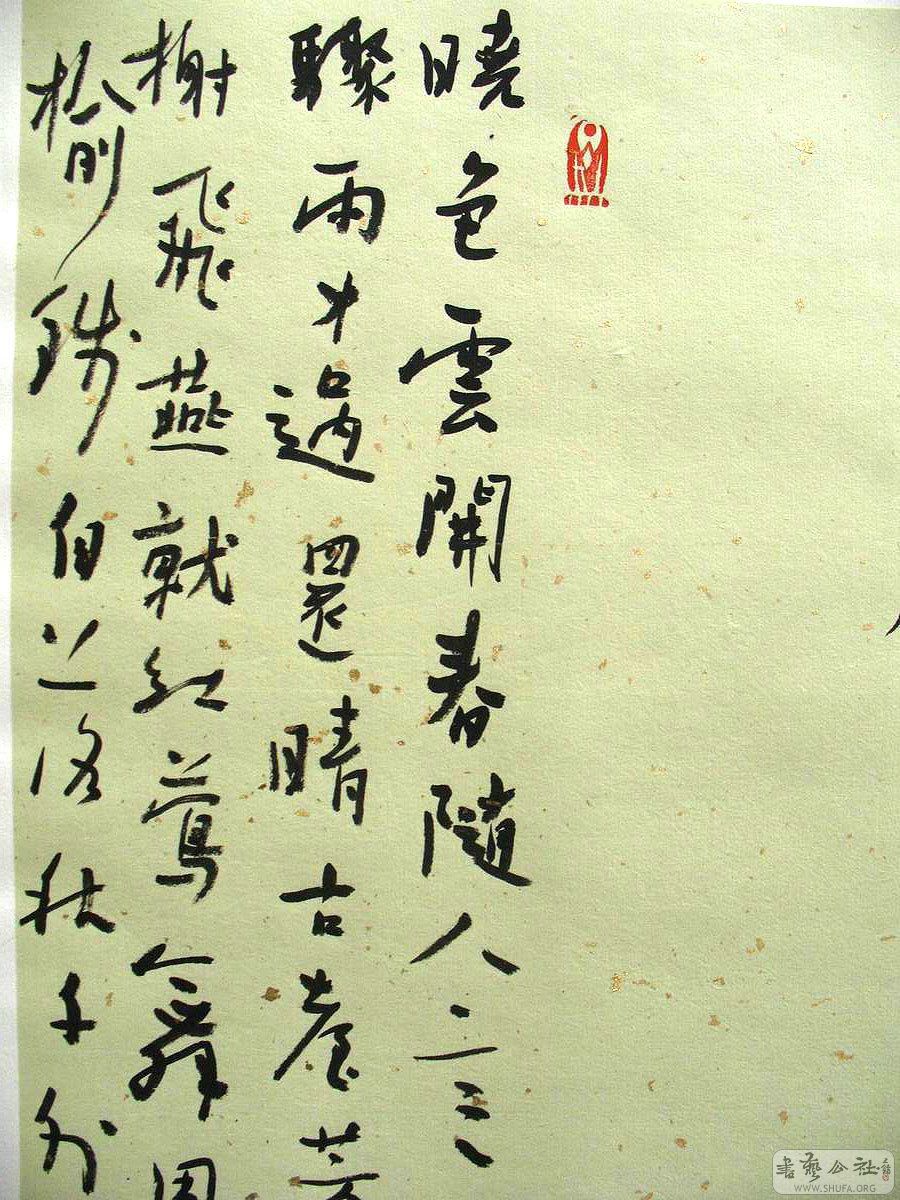 曉色雲開春隨人意
驟雨才過還晴古臺芳
榭飛燕就紅鶯舞困
榆錢自落秋千外
書藝公社
WWW.SHUFA.ORG